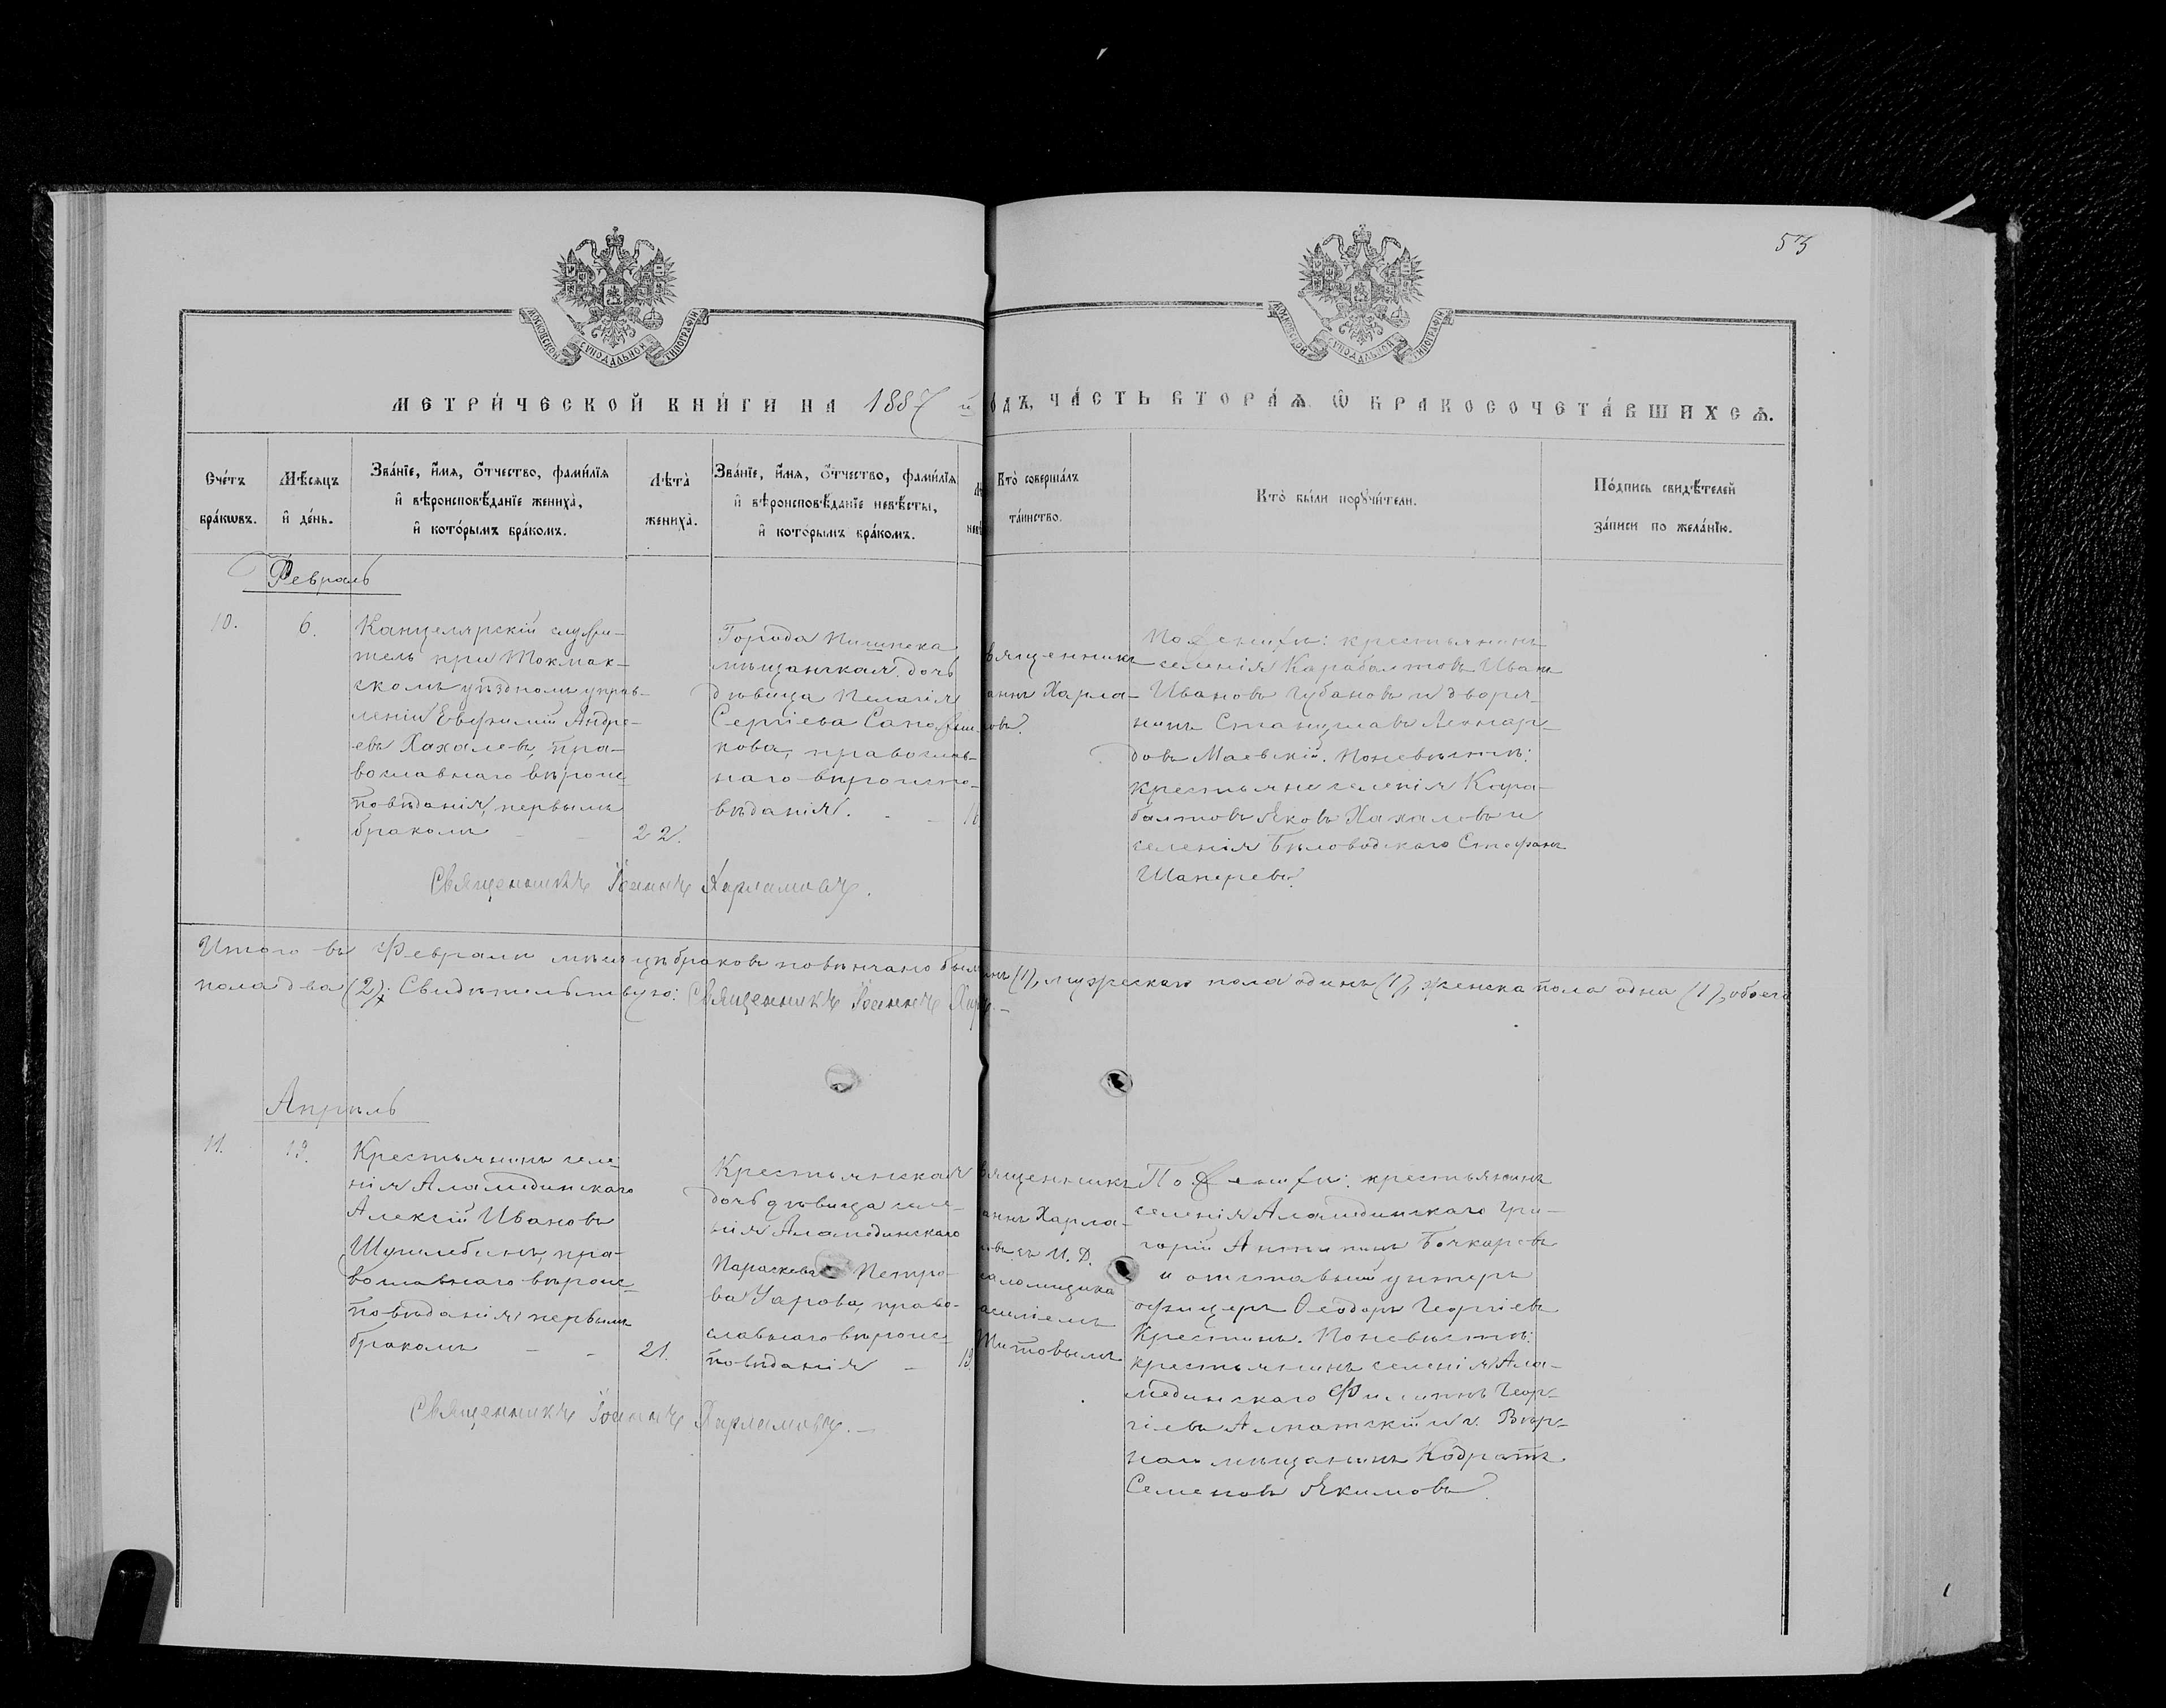 53
МОСКОВСКОЙ СѴНОДАЛЬНОЙ ТИПОГРАФІИ
МОСКОВСКОЙ СѴНОДАЛЬНОЙ ТИПОГРАФІИ
МЕТРИ́ЧЕСКОЙ КНИ́ГИ НА 1887 й
ОДЪ, ЧА́СТЬ ВТОРА́Ѧ Ѽ БРАКОСОЧЕТА́ВШИХСѦ.
Сче́тъ бра́кѡвъ.
Мѣ́сѧцъ и҆ де́нь.
Зва́нїе, и҆́мѧ, ѻ҆́тчество, фами́лїѧ
и҆ вѣроисповѣ́данїе жениха̀,
и҆ кото́рымъ бра́комъ.
Лѣ́та̀ жениха̀.
Зва́нїе, и҆́мѧ, ѻ҆́тчество, фами́лїѧ
и҆ вѣроисповѣ́данїе невѣ́сты,
и҆ кото́рымъ бра́комъ.
Кто̀ соверша́лъ та́инство.
Кто̀ бы́ли порꙋчи́тели.
По́дпись свидѣ́телей
за́писи по жела́нїю.
Февраль
10.
6.
Канцелярскій служи-
тель при Токмак-
скомъ уѣздномъ управ-
леніи Евфимій Андре-
евъ Хахалевъ, пра-
вославнаго вѣроис-
повѣданія, первымъ
бракомъ - -
22.
Города Пишпека
мѣщанская дочь
дѣвица Пелагія
Сергіева Сапожни-
кова, православ-
наго вѣроиспо-
вѣданія. - -
вященникъ
аннъ Харла-
овъ.
По женихѣ: крестьянинъ
селенія Карабалтовъ Иванъ
Ивановъ Губановъ и дворя-
нинъ Станиславъ Леонар-
довъ Маевскій. По невѣстѣ:
крестьяне селенія Кара-
балтовъ Яковъ Хахалевъ и
селенія Бѣловодскаго Стефанъ
Шаперевъ.
Священникъ Іоаннъ Харламовъ.
Итого въ Февралѣ мѣсяцѣ браковъ повѣнчано было
инъ (1), мужескаго пола одинъ (1), женска пола одна (1), обоего
пола два (2). Свидѣтельствую: Священникъ Іоаннъ
Апрѣль
11.
19.
Крестьянинъ селе-
нія Аламединскаго
Алексій Ивановъ
пра-
вославнаго вѣроис-
повѣданія, первымъ
бракомъ - -
21.
Крестьянская
дочь дѣвица селе-
нія Аламединскаго
Параскева Петро-
ва Уарова, право-
славнаго вѣроис-
повѣданія -
вященникъ
аннъ Харла-
овъ съ И. Д.
саломщика
асиліемъ
Титовымъ
По женихѣ: крестьянинъ
селенія Аламединскаго Гри-
горій Антипинъ Бочкаревъ
и отставный унтеръ
офицеръ Ѳеодоръ Георгіевъ
Крестинъ. По невѣстѣ:
крестьянинъ селенія Ала-
мединскаго Филиппъ Геор-
гіевъ Алпатскій и г. Вѣр-
наго мѣщанинъ Кодратъ
Семеновъ Якимовъ.
Священникъ Іоаннъ Харламовъ.